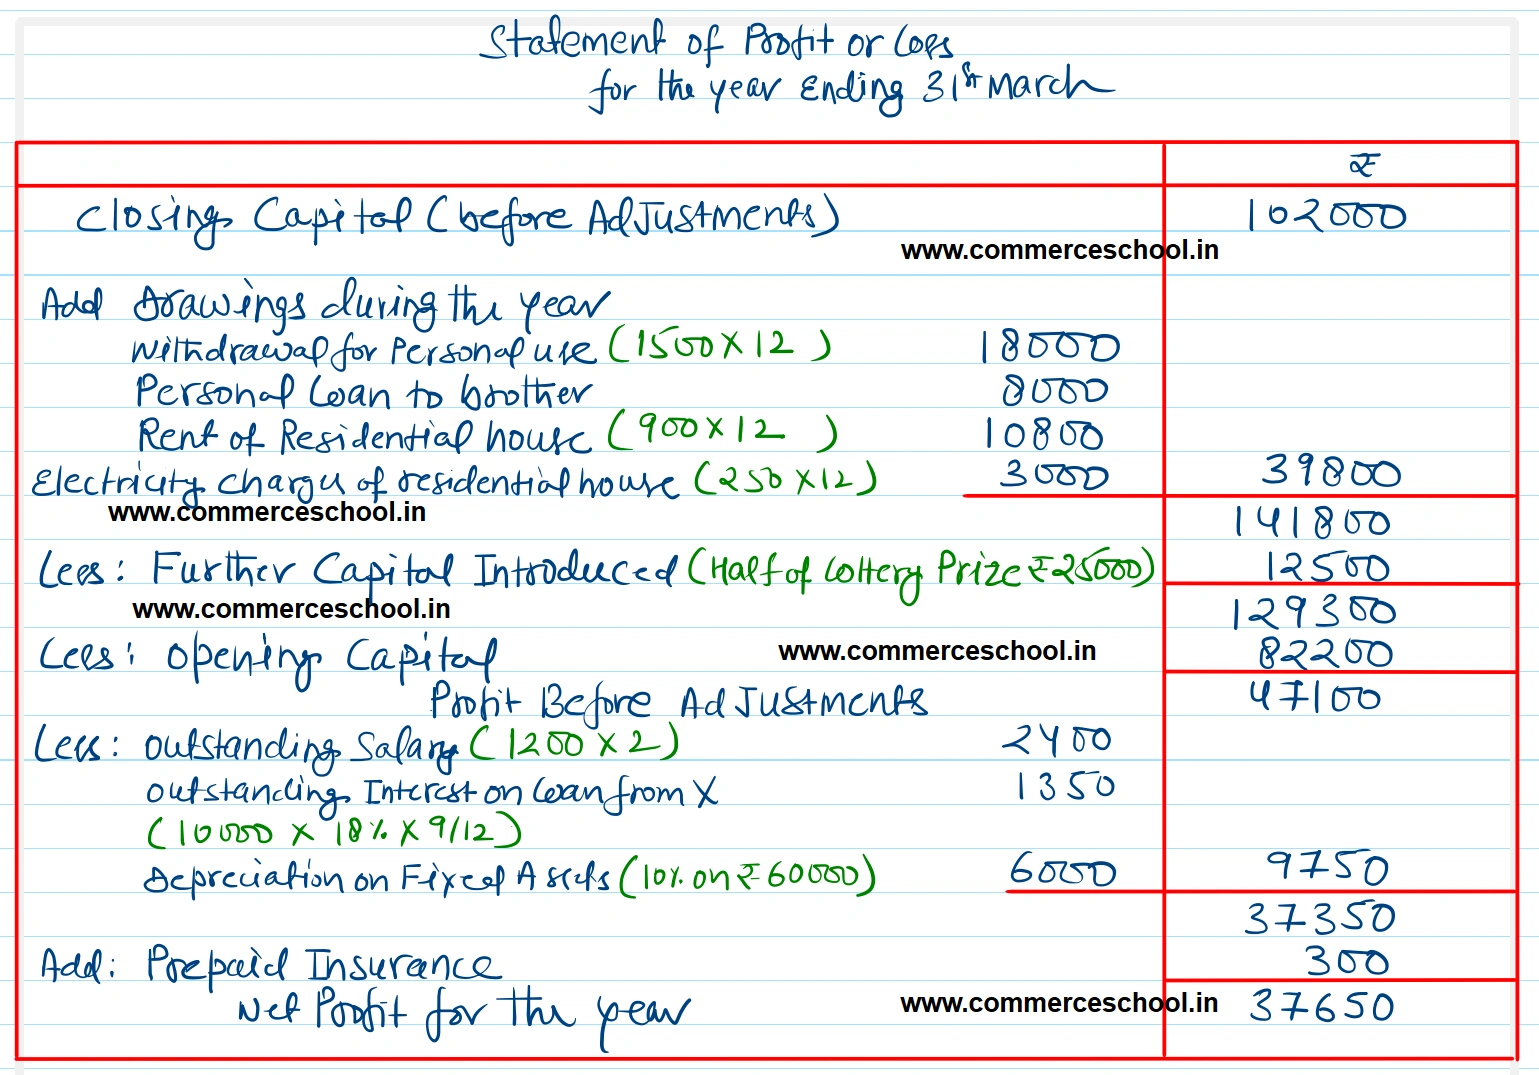 Statement of Profit or Loss
for the year Ending 31st March
₹
Closing Capital (before AdJustments) 102000
www.commerceschool.in
Add Drawings during the year
Withdrawal for Personal use (1500 X 12 ) 18000
Personal Loan to brother 8000
Rent of Residential house (900 X 12 ) 10800
Electricity charges of residential house (250 X 12) 3000 39800
www.commerceschool.in 141800
Less: Further Capital Introduced (Half of Lottery Prize ₹ 25000) 12500
www.commerceschool.in 129300
Less: Opening Capital www.commerceschool.in 82200
Profit Before AdJustments 47100
Less: Outstanding Salary (1200 X 2) 2400
Outstanding Interest on Loan from X 1350
(10000 X 18% X 9/12)
Depreciation on Fixed Assets (10% on ₹ 60000) 6000 9750
37350
Add: Prepaid Insurance 300
Net Profit for the year www.commerceschool.in 37650